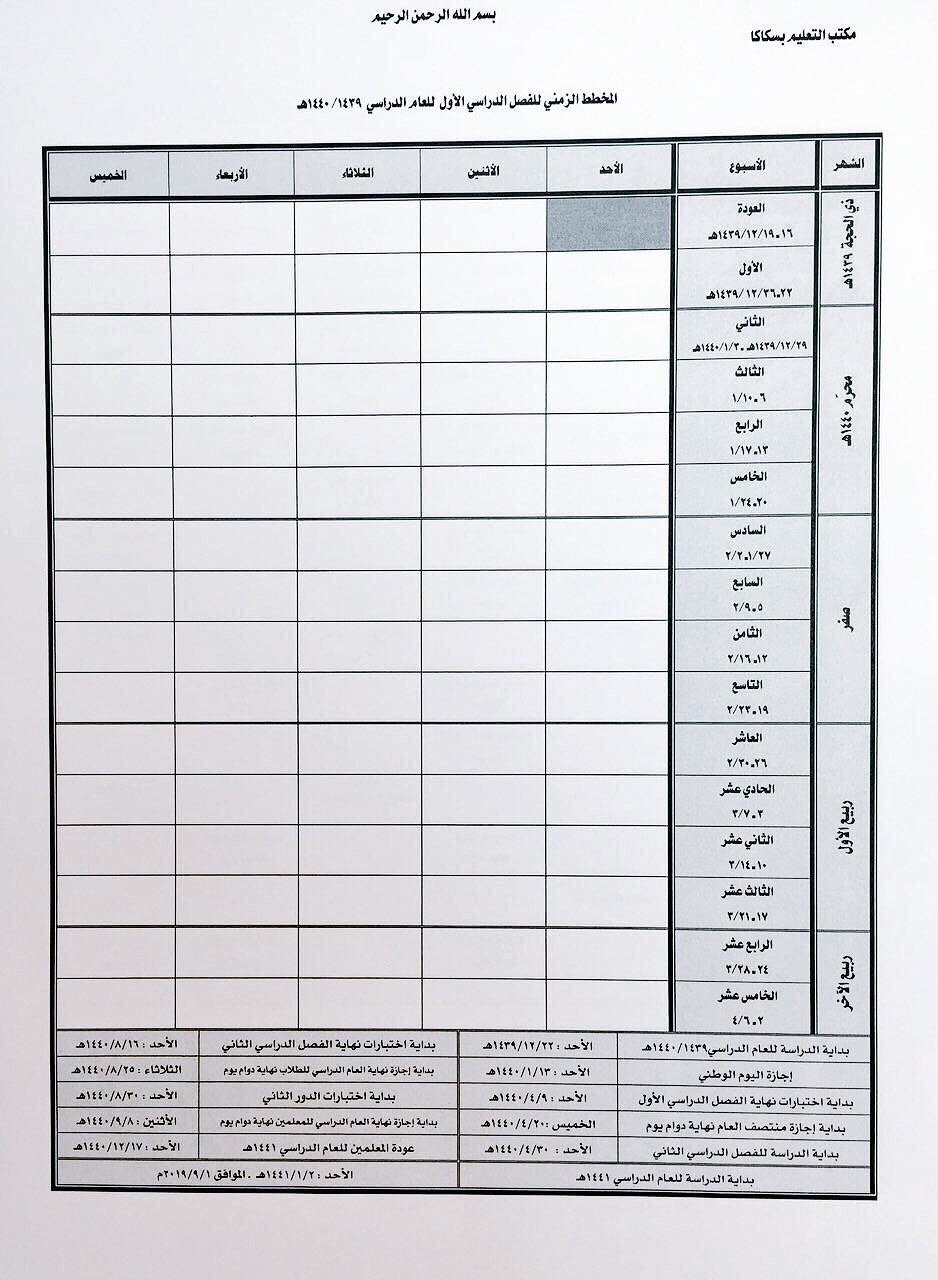 بسم الله الرحمن الرحيم
مكتب التعليم بسكاكا
المخطط الزمني للفصل الدراسي الأول للعام الدراسي ١٤٤٠/١٤٣٩هـ
الشهر الأسبوع الأحد الأثنين الثلاثاء الأربعاء الخميس
ذي الحجة ١٤٣٩هـ
العودة
١٦-١٤٣٩/١٢/١٩هـ
الأول
٢٢-١٤٣٩/١٢/٢٦هـ
محرم ١٤٤٠هـ
الثاني
١٤٣٩/١٢/٢٩هـ - ١٤٤٠/١/٣هـ
الثالث
٦-١/١٠
الرابع
١٣-١/١٧
الخامس
٢٠-١/٢٤
صفر
السادس
١/٢٧-٢/٢
السابع
٥-٢/٩
الثامن
١٢-٢/١٦
التاسع
١٩-٢/٢٣
ربيع الأول
العاشر
٢٦-٢/٣٠
الحادي عشر
٣-٣/٧
الثاني عشر
١٠-٣/١٤
الثالث عشر
١٧-٣/٢١
ربيع الآخر
الرابع عشر
٢٤-٣/٢٨
الخامس عشر
٢-٤/٦
بداية الدراسة للعام الدراسي ١٤٤٠/١٤٣٩هـ الأحد : ١٤٣٩/١٢/٢٢هـ بداية اختبارات نهاية الفصل الدراسي الثاني الأحد : ١٤٤٠/٨/١٦هـ
إجازة اليوم الوطني الأحد : ١٤٤٠/١/١٣هـ بداية إجازة نهاية العام الدراسي للطلاب نهاية دوام يوم الثلاثاء : ١٤٤٠/٨/٢٥هـ
بداية اختبارات نهاية الفصل الدراسي الأول الأحد : ١٤٤٠/٤/٩هـ بداية اختبارات الدور الثاني الأحد : ١٤٤٠/٨/٣٠هـ
بداية إجازة منتصف العام نهاية دوام يوم الخميس : ١٤٤٠/٤/٢٠هـ بداية إجازة نهاية العام الدراسي للمعلمين نهاية دوام يوم الأثنين : ١٤٤٠/٩/٨هـ
بداية الدراسة للفصل الدراسي الثاني الأحد : ١٤٤٠/٤/٣٠هـ عودة المعلمين للعام الدراسي ١٤٤١هـ الأحد : ١٤٤٠/١٢/١٧هـ
بداية الدراسة للعام الدراسي ١٤٤١هـ الأحد : ١٤٤١/١/٢هـ - الموافق ٢٠١٩/٩/١م